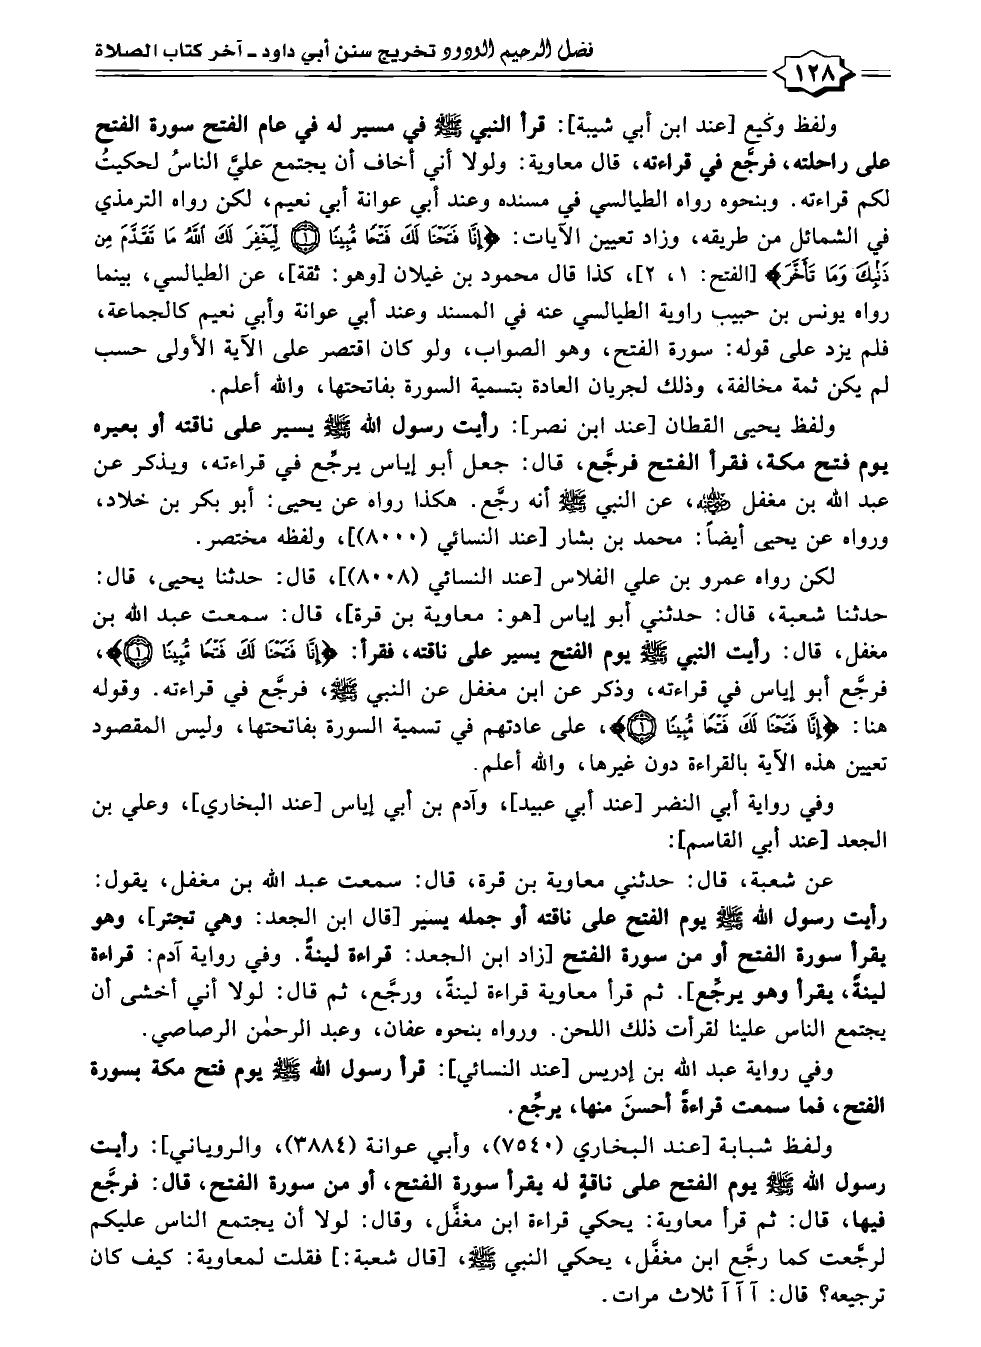 فضل الرحيم الودود تخريج سنن أبي داود ـ آخر كتاب الصلاة
١٢٨
ولفظ وكيع [عند ابن أبي شيبة]: قرأ النبي ﷺ في مسير له في عام الفتح سورة الفتح
على راحلته، فرجَّع في قراءته، قال معاوية: ولولا أني أخاف أن يجتمع عليَّ الناسُ لحكيتُ
لكم قراءته. وبنحوه رواه الطيالسي في مسنده وعند أبي عوانة أبي نعيم، لكن رواه الترمذي
في الشمائل من طريقه، وزاد تعيين الآيات: ﴿إِنَّا فَتَحْنَا لَكَ فَتْحًا مُّبِينًا ۝١ لِّيَغْفِرَ لَكَ ٱللَّهُ مَا تَقَدَّمَ مِن
ذَنۢبِكَ وَمَا تَأَخَّرَ﴾ [الفتح: ١، ٢]، كذا قال محمود بن غيلان [وهو: ثقة]، عن الطيالسي، بينما
رواه يونس بن حبيب راوية الطيالسي عنه في المسند وعند أبي عوانة وأبي نعيم كالجماعة،
فلم يزد على قوله: سورة الفتح، وهو الصواب، ولو كان اقتصر على الآية الأولى حسب
لم يكن ثمة مخالفة، وذلك لجريان العادة بتسمية السورة بفاتحتها، والله أعلم.
ولفظ يحيى القطان [عند ابن نصر]: رأيت رسول الله ﷺ يسير على ناقته أو بعيره
يوم فتح مكة، فقرأ الفتح فرجَّع، قال: جعل أبو إياس يرجِّع في قراءته، ويذكر عن
عبد الله بن مغفل رضي الله عنه، عن النبي ﷺ أنه رجَّع. هكذا رواه عن يحيى: أبو بكر بن خلاد،
ورواه عن يحيى أيضاً: محمد بن بشار [عند النسائي (٨٠٠٠)]، ولفظه مختصر.
لكن رواه عمرو بن علي الفلاس [عند النسائي (٨٠٠٨)]، قال: حدثنا يحيى، قال:
حدثنا شعبة، قال: حدثني أبو إياس [هو: معاوية بن قرة]، قال: سمعت عبد الله بن
مغفل، قال: رأيت النبي ﷺ يوم الفتح يسير على ناقته، فقرأ: ﴿إِنَّا فَتَحْنَا لَكَ فَتْحًا مُّبِينًا ۝١﴾،
فرجَّع أبو إياس في قراءته، وذكر عن ابن مغفل عن النبي ﷺ، فرجَّع في قراءته. وقوله
هنا: ﴿إِنَّا فَتَحْنَا لَكَ فَتْحًا مُّبِينًا ۝١﴾، على عادتهم في تسمية السورة بفاتحتها، وليس المقصود
تعيين هذه الآية بالقراءة دون غيرها، والله أعلم.
وفي رواية أبي النضر [عند أبي عبيد]، وآدم بن أبي إياس [عند البخاري]، وعلي بن
الجعد [عند أبي القاسم]:
عن شعبة، قال: حدثني معاوية بن قرة، قال: سمعت عبد الله بن مغفل، يقول:
رأيت رسول الله ﷺ يوم الفتح على ناقته أو جمله يسير [قال ابن الجعد: وهي تجتر]، وهو
يقرأ سورة الفتح أو من سورة الفتح [زاد ابن الجعد: قراءة لينةً. وفي رواية آدم: قراءة
لينةً، يقرأ وهو يرجِّع]. ثم قرأ معاوية قراءة لينةً، ورجَّع، ثم قال: لولا أني أخشى أن
يجتمع الناس علينا لقرأت ذلك اللحن. ورواه بنحوه عفان، وعبد الرحمٰن الرصاصي.
وفي رواية عبد الله بن إدريس [عند النسائي]: قرأ رسول الله ﷺ يوم فتح مكة بسورة
الفتح، فما سمعت قراءةً أحسنَ منها، يرجِّع.
ولفظ شبابة [عند البخاري (٧٥٤٠)، وأبي عوانة (٣٨٨٤)، والروياني]: رأيت
رسول الله ﷺ يوم الفتح على ناقةٍ له يقرأ سورة الفتح، أو من سورة الفتح، قال: فرجَّع
فيها، قال: ثم قرأ معاوية: يحكي قراءة ابن مغفَّل، وقال: لولا أن يجتمع الناس عليكم
لرجَّعت كما رجَّع ابن مغفَّل، يحكي النبي ﷺ، [قال شعبة:] فقلت لمعاوية: كيف كان
ترجيعه؟ قال: آ آ آ ثلاث مرات.